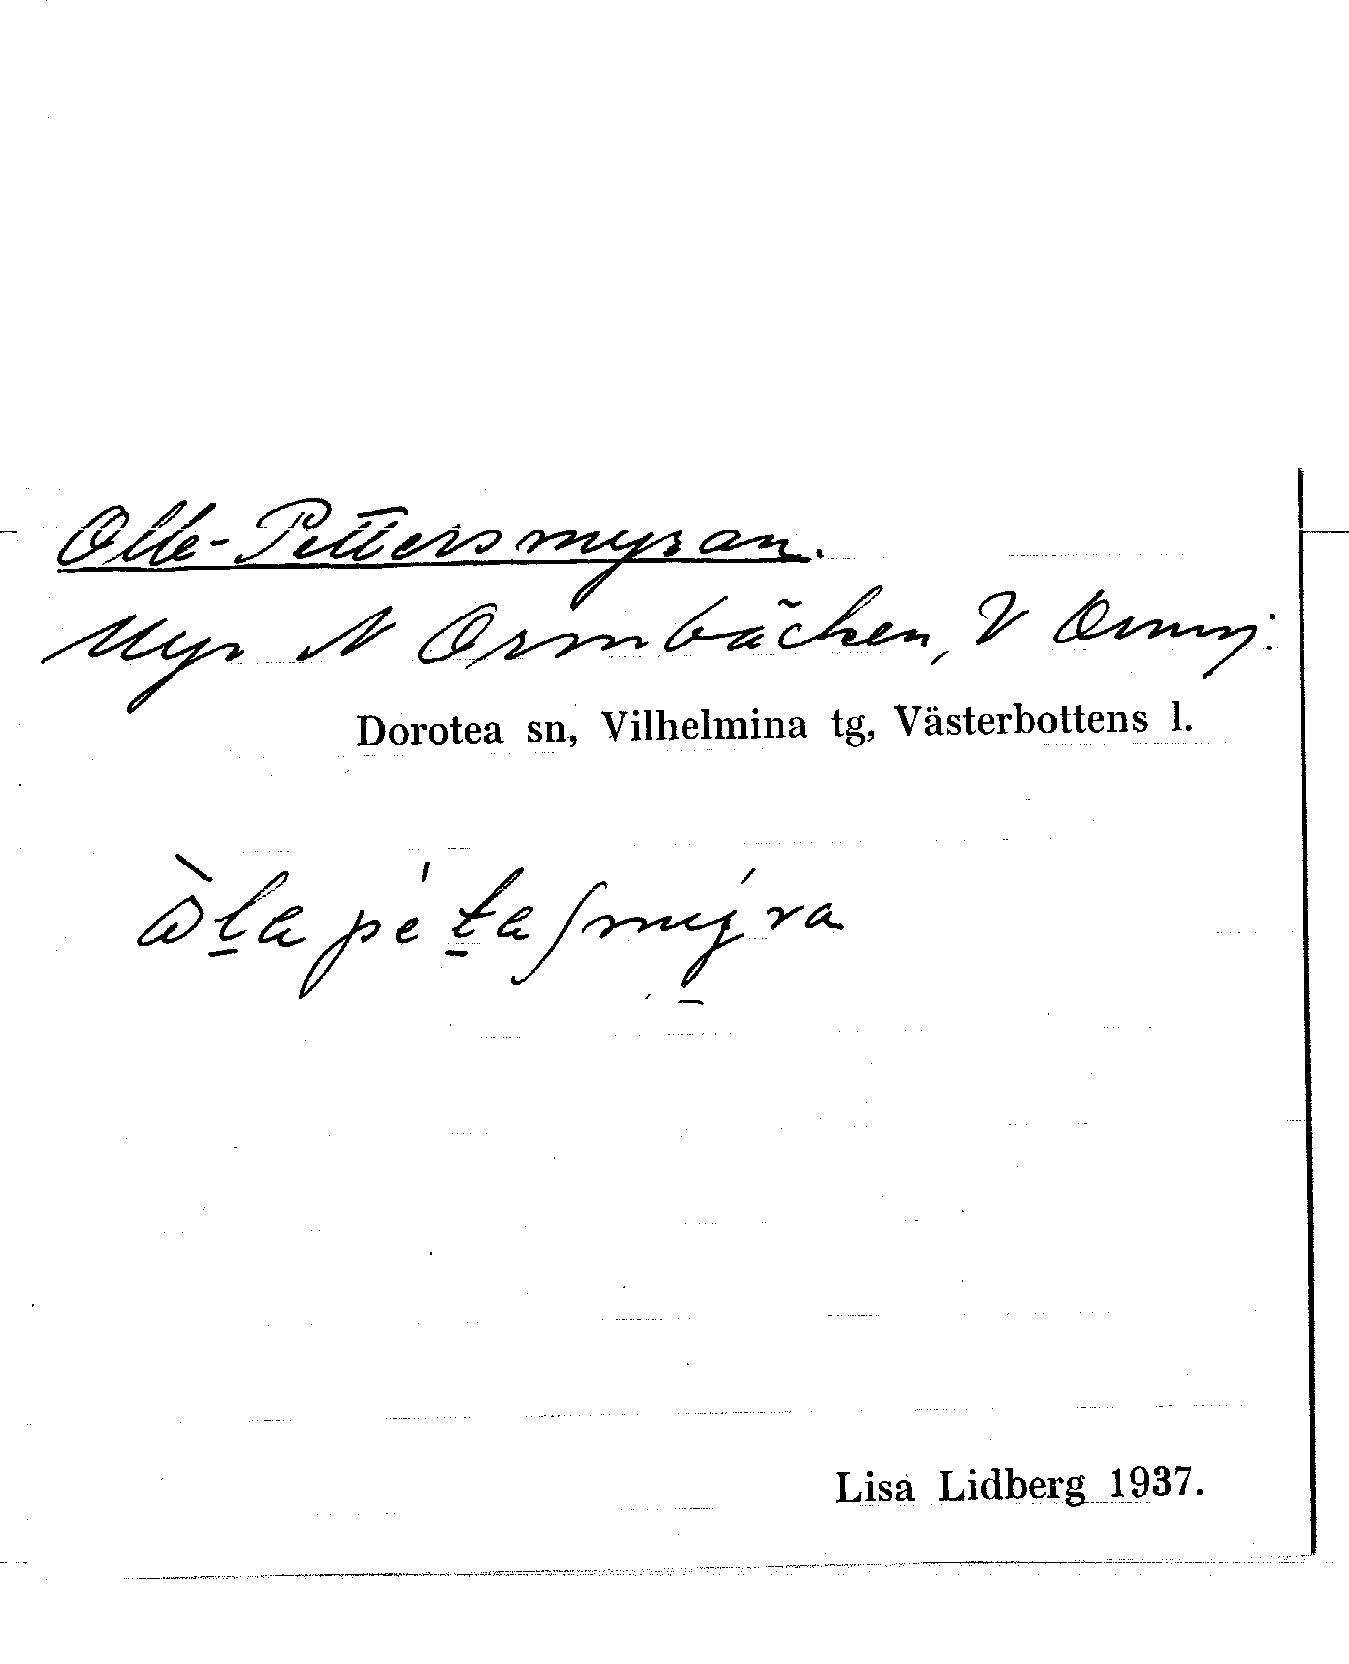 Olle-Pettersmyran.
Myr N Ormbäcken, V
Dorotea sn, Vilhelmina tg, Västerbottens l.
Lisa Lidberg 1937.